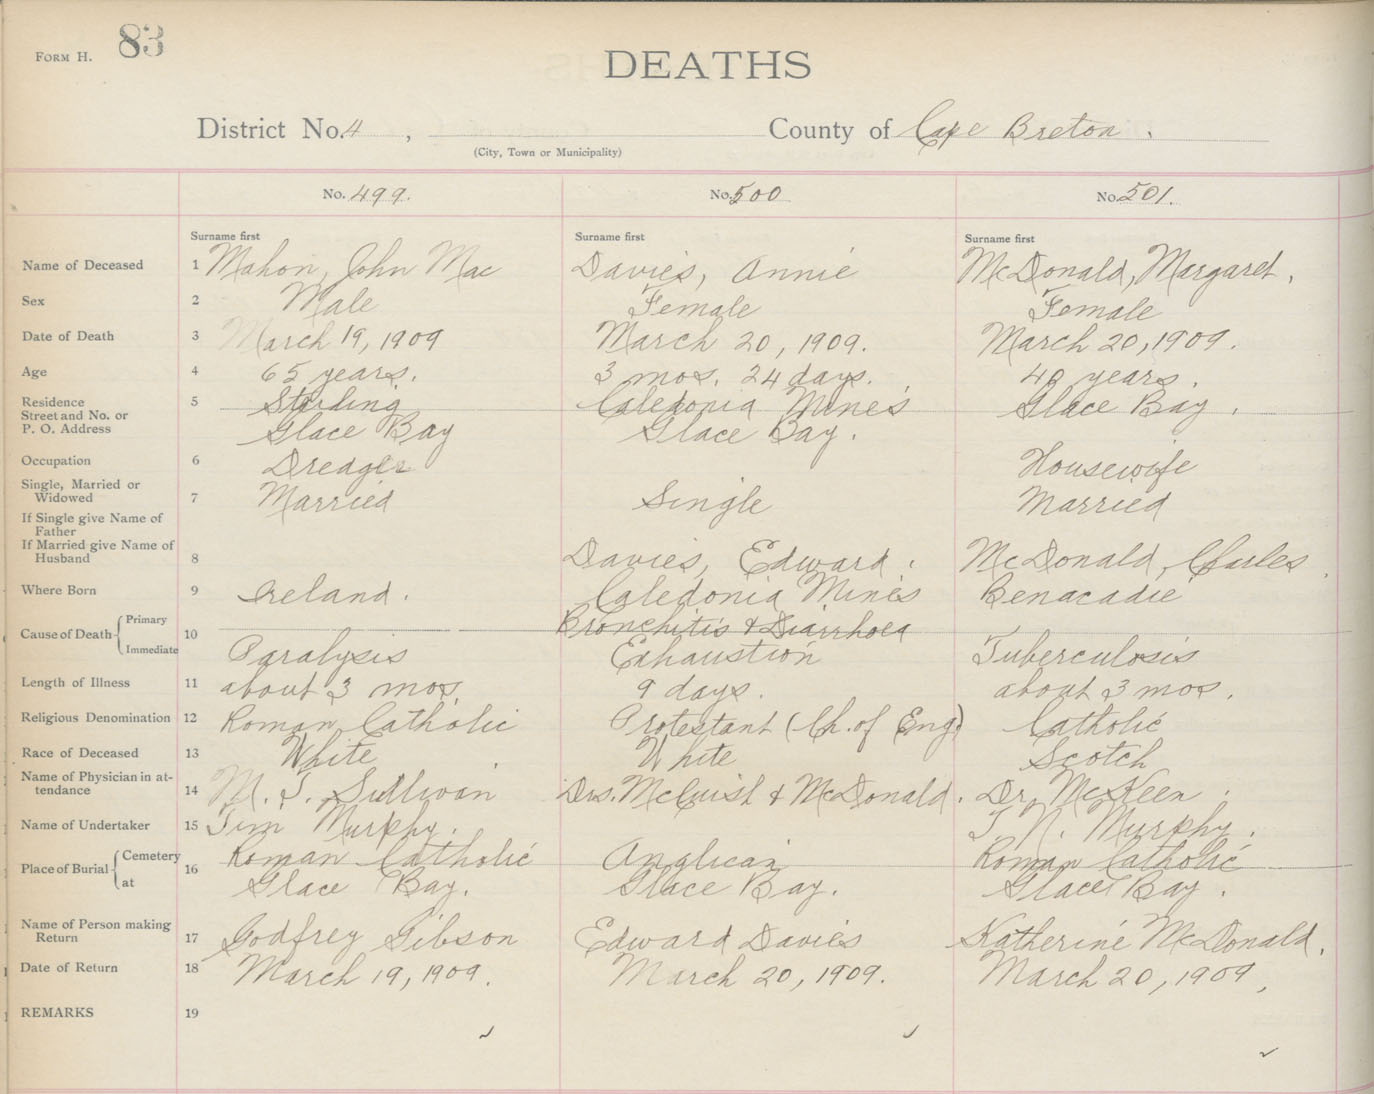 Form H. 83
DEATHS
District No. 4 , County of Cape Breton .
(City, Town or Municipality)
No. 499. No. 500 No. 501.
Surname first Surname first Surname first
Name of Deceased 1 Mahon, John Mac Davies, Annie McDonald, Margaret.
Sex 2 Male Female Female
Date of Death 3 March 19, 1909 March 20, 1909. March 20, 1909.
Age 4 65 years. 3 mos. 24 days. 40 years.
Residence 5 Sterling Caledonia Mines Glace Bay .
Street and No. or
P. O. Address Glace Bay Glace Bay.
Occupation 6 Dredger Housewife
Single, Married or
Widowed 7 Married Single Married
If Single give Name of
Father
If Married give Name of
Husband 8 Davies, Edward . McDonald, Charles .
Where Born 9 Ireland. Caledonia Mines Benacadie
Cause of Death Primary 10 Bronchitis & Diarrhoea
Immediate Paralysis Exhaustion Tuberculosis
Length of Illness 11 about 3 mos. 9 days. about 3 mos.
Religious Denomination 12 Roman Catholic Protestant (Ch. of Eng.) Catholic
Race of Deceased 13 White White Scotch
Name of Physician in at-
tendance 14 M. T. Sullivan Drs. McCuish & McDonald. Dr. McKeen .
Name of Undertaker 15 Tim Murphy. T. N. Murphy.
Place of Burial Cemetery 16 Roman Catholic Anglican Roman Catholic
at Glace Bay. Glace Bay. Glace Bay .
Name of Person making
Return 17 Godfrey Gibson Edward Davies Katherine McDonald.
Date of Return 18 March 19, 1909. March 20, 1909. March 20, 1909,
REMARKS 19